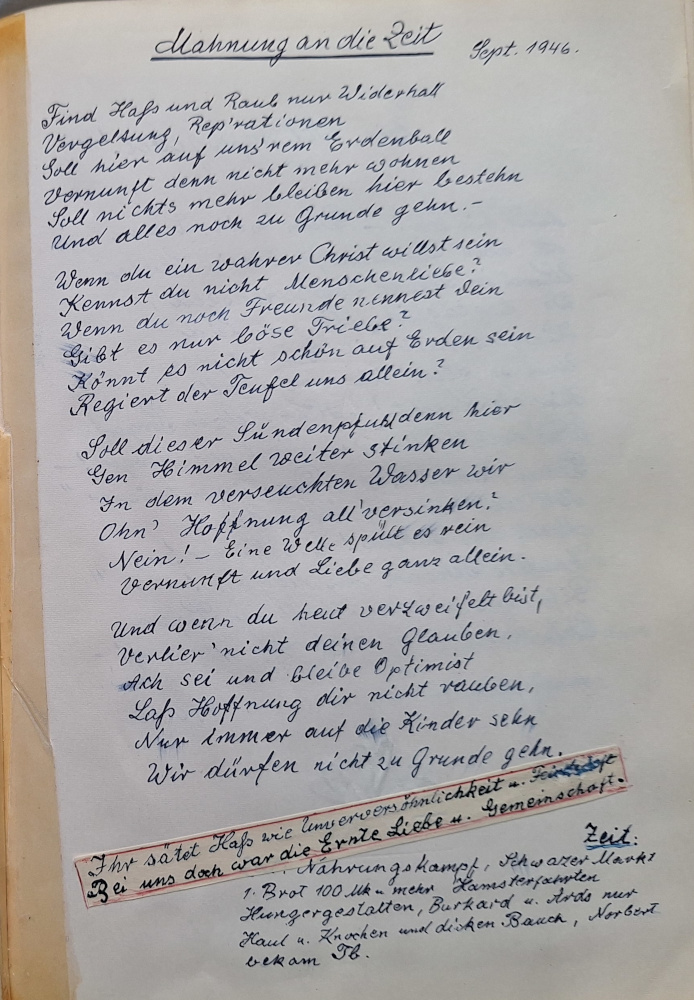 Mahnung an die Zeit
Sept. 1946.
Find Haß und Raub nur Widerhall
Vergeltung, Rep'rationen
Soll hier auf uns'rem Erdenball
Vernunft denn nicht mehr wohnen
Soll nichts mehr bleiben hier bestehn
Und alles noch zu Grunde gehn.-
Wenn du ein wahrer Christ willst sein
Kennst du nicht Menschenliebe?
Wenn du noch Freunde nennest dein
Gibt es nur böse Triebe?
Könnt es nicht schön auf Erden sein
Regiert der Teufel uns allein?
Soll dieser Sündenpfuhl denn hier
Gen Himmel weiter stinken
In dem verseuchten Wasser wir
Ohn' Hoffnung all' versinken?
Nein! - Eine Welle spült es rein
Vernunft und Liebe ganz allein.
Und wenn du heut verzweifelt bist,
Verlier' nicht deinen Glauben,
Ach sei und bleibe Optimist
Laß Hoffnung dir nicht rauben,
Nur immer auf die Kinder sehn
Wir dürfen nicht zu Grunde gehn.
Ihr sätet Haß wie Unversöhnlichkeit u. Feindschaft
Bei uns doch war die Ernte Liebe u. Gemeinschaft.
Zeit:
Nahrungskampf, Schwazer Markt
1 Brot 100 Mk u mehr Hamsterfahrten
Hungergestalten, Burkard u. Ards nur
Haut u. Knochen und dicken Bauch, Norbert
bekam Tb.